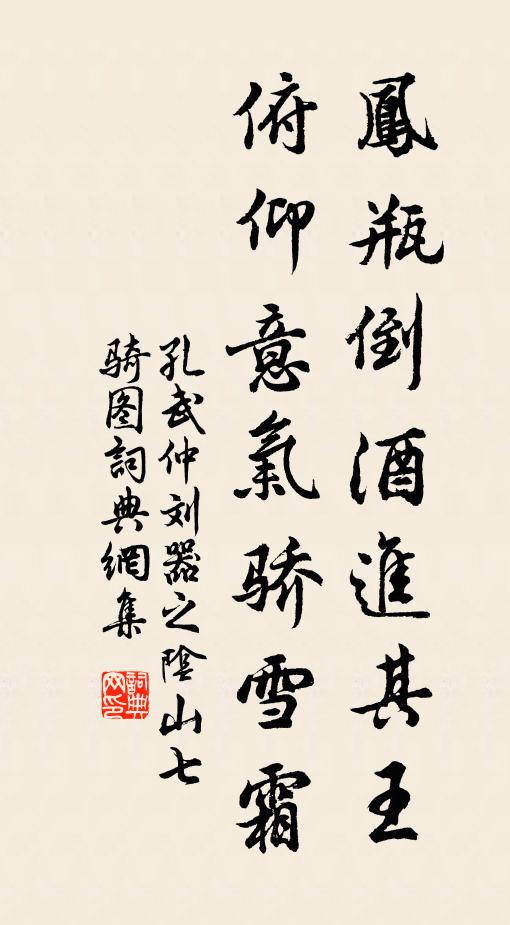 鳳瓶倒酒進其王
俯仰意氣骄雪霜
孔武仲刘器之陰山七
骑图詞典網集
詞典网印